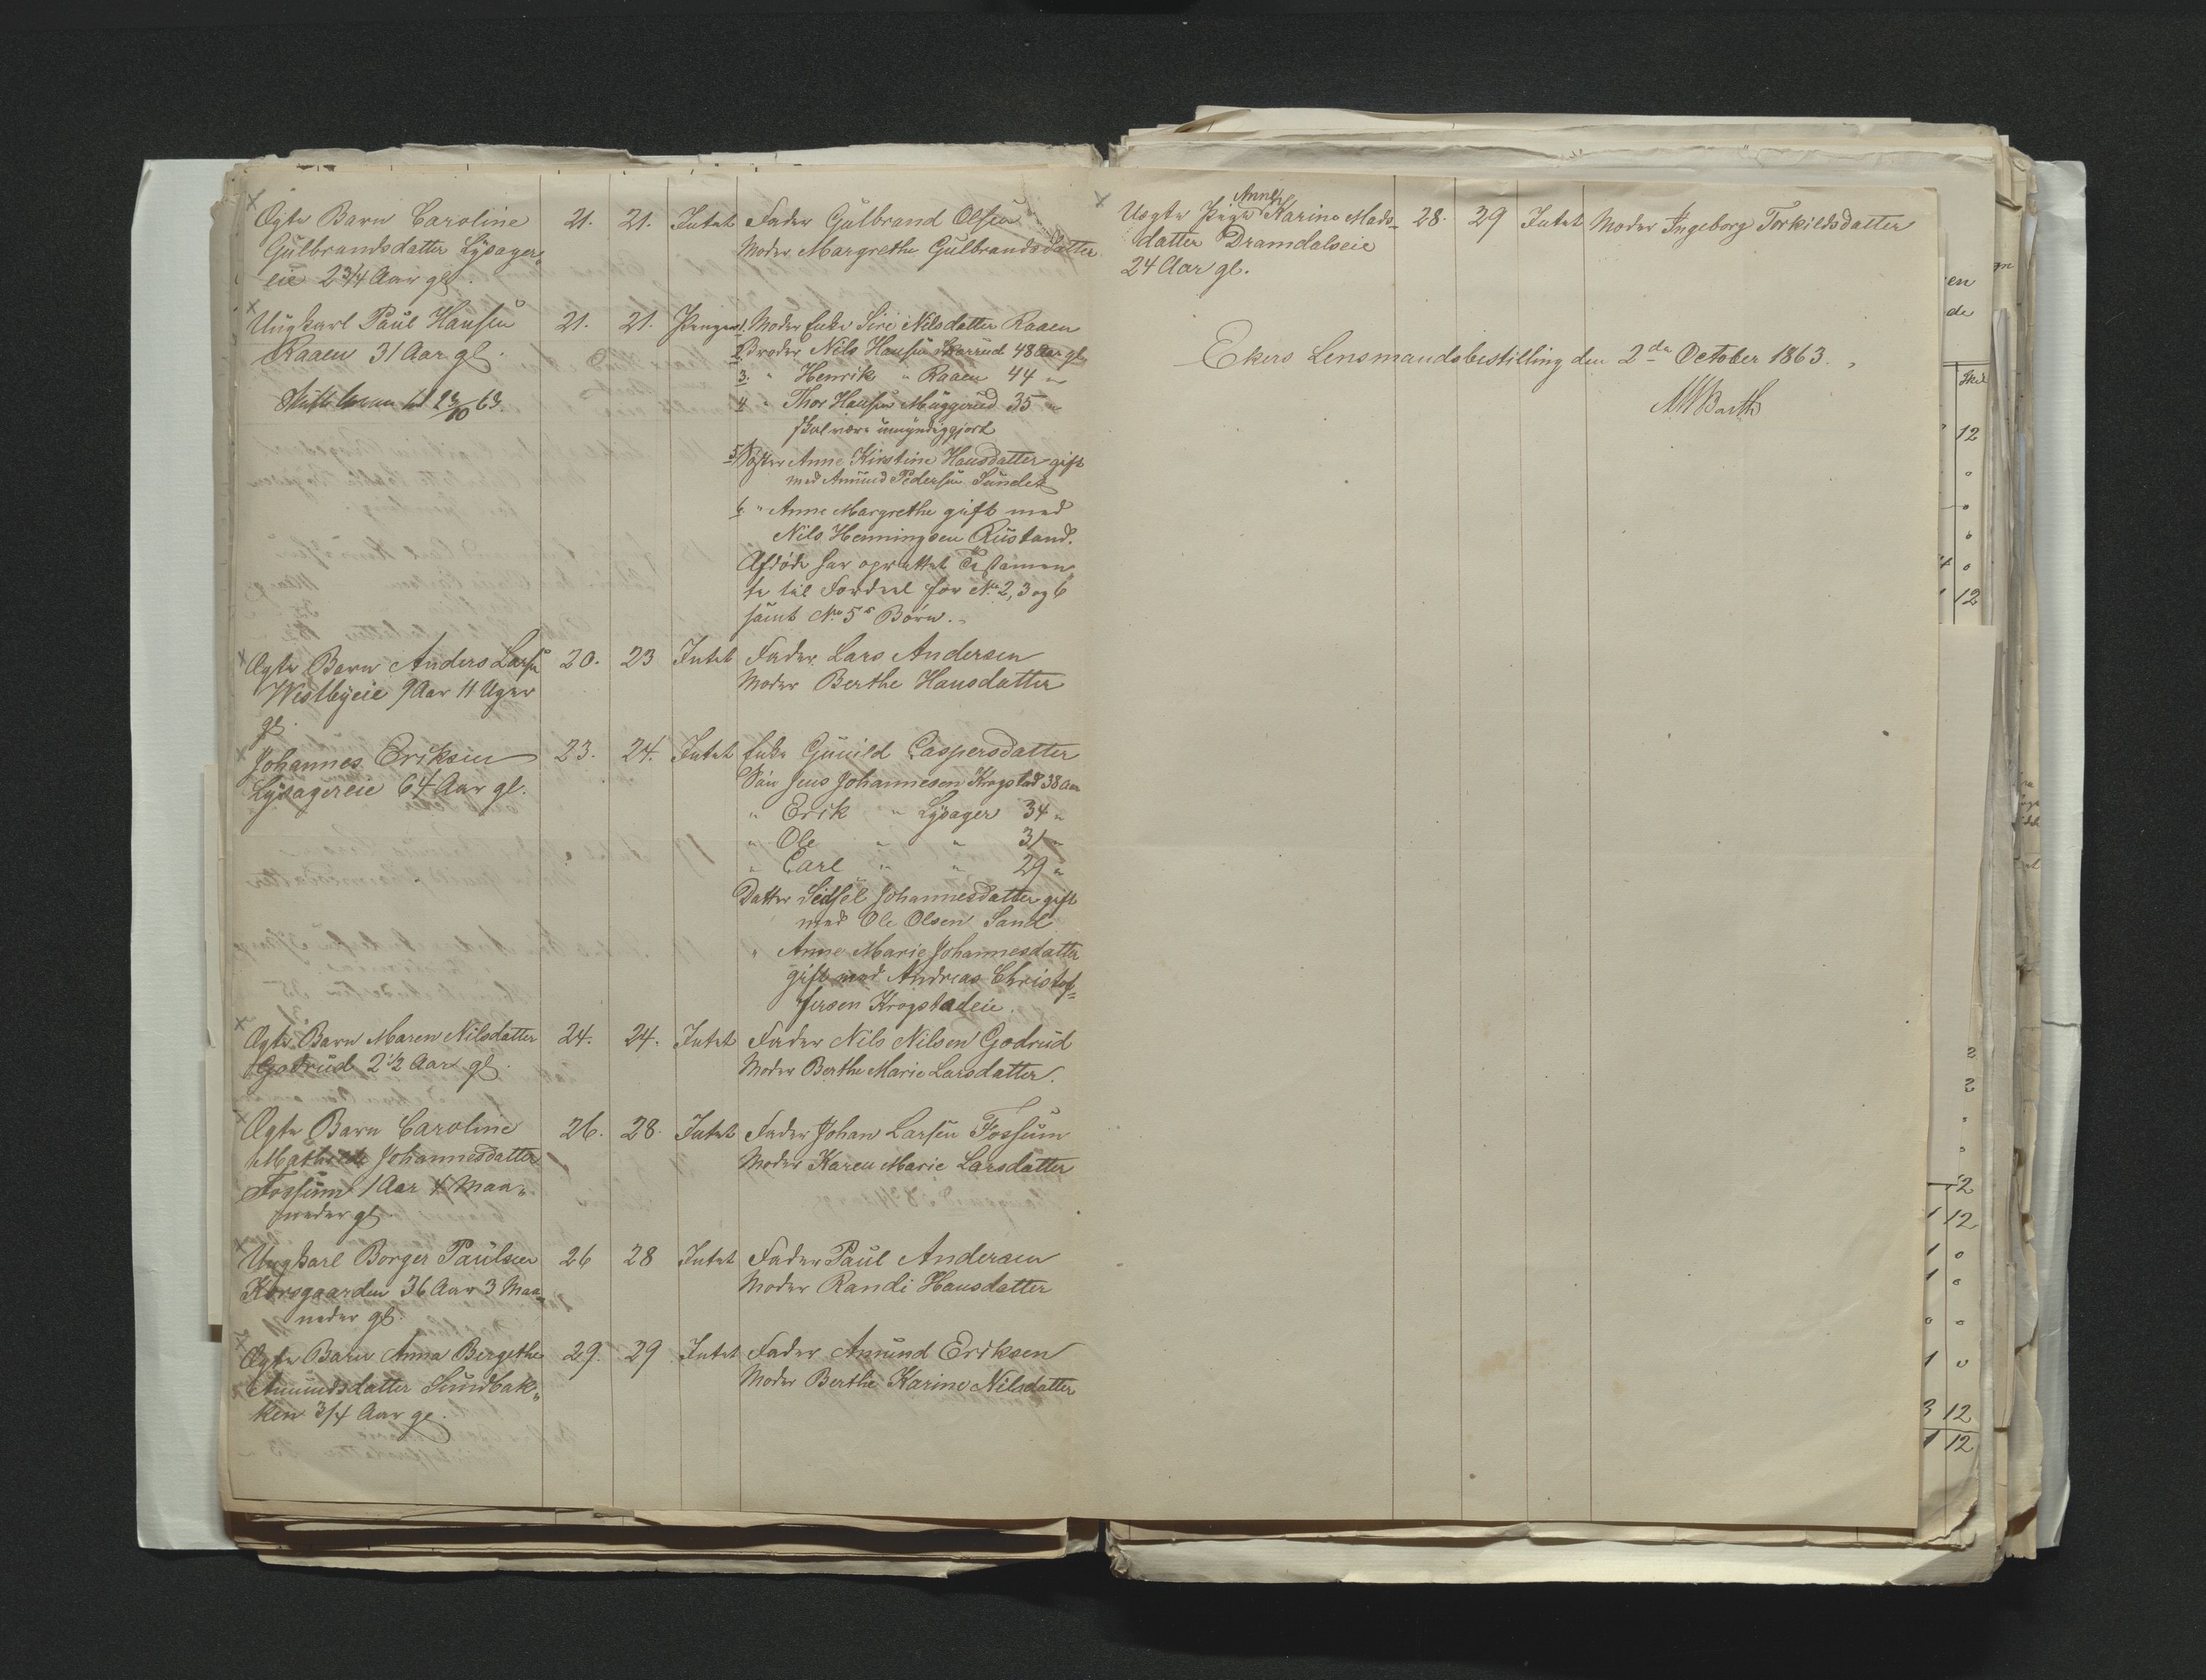 Ægte Barn Caroline 21. 21. Intet Fader Gulbrand Olsen
Gulbrandsdatter Lysager- Moder Margrethe Gulbrandsdatter
eie 2 3/4 Aar gl.
Ungkarl Paul Hansen 21. 21. Penger 1. Moder Enke Siri Nilsdatter Raaen
Raaen 31 Aar gl. 2. Broder Nils Hansen Skarrud 48 Aar gl
3. " Henrik " Raaen 44 "
4 " Thor Hansen Muggerud 35 "
skal være umyndiggjort
5 Søster Anne Kirstine Hansdatter gift
med Amund Pedersen Sundet
6. " Anne Margrethe gift med
Nils Henningsen Rustand.
Afdøde har oprettet Testamen-
te til Fordeel for No 2, 3 og 6
samt No 5s Børn.
23/10 63.
Ægte Barn Anders Larsen 20. 23 Intet Fader Lars Andersen
Westbyeie 9 Aar 11 Uger Moder Berthe Hansdatter
gl.
Johannes Eriksen 23. 24. Intet Enke Gunild Caspersdatter
Lysagereie 64 Aar gl. Søn Jens Johannesen Krogstad 38 Aar
" Erik " Lysager 34 "
" Ole " " 31 "
" Carl " " 29 "
Datter Sidsel Johannesdatter gift
med Ole Olsen Sand
" Anne Marie Johannesdatter
gift med Andreas Christof-
fersen Krogstadeie.
Ægte Barn Maren Nilsdatter 24. 24. Intet Fader Nils Nilsen Godrud
Godrud 2 1/2 Aar gl. Moder Berthe Marie Larsdatter.
Ægte Barn Caroline 26. 28. Intet Fader Johan Larsen Fossum
Mathilde Johannesdatter Moder Karen Marie Larsdatter
Fossum 1 Aar 4 Maa-
neder gl.
Ungkarl Borger Paulsen 26 28 Intet Fader Paul Andersen
Korsgaarden 36 Aar 3 Maa- Moder Randi Hansdatter
neder gl.
Ægte Barn Anna Bergethe 29. 29 Intet Fader Amund Eriksen
Amundsdatter Sundbak- Moder Berthe Karine Nilsdatter
ken 3/4 Aar gl.
Anne
Uægte Pige Karine Mads- 28. 29 Intet Moder Ingeborg Torkildsdatter
datter Dramdalseie
24 Aar gl.
Ekers Lensmandsbestilling den 2de October 1863.
Barth